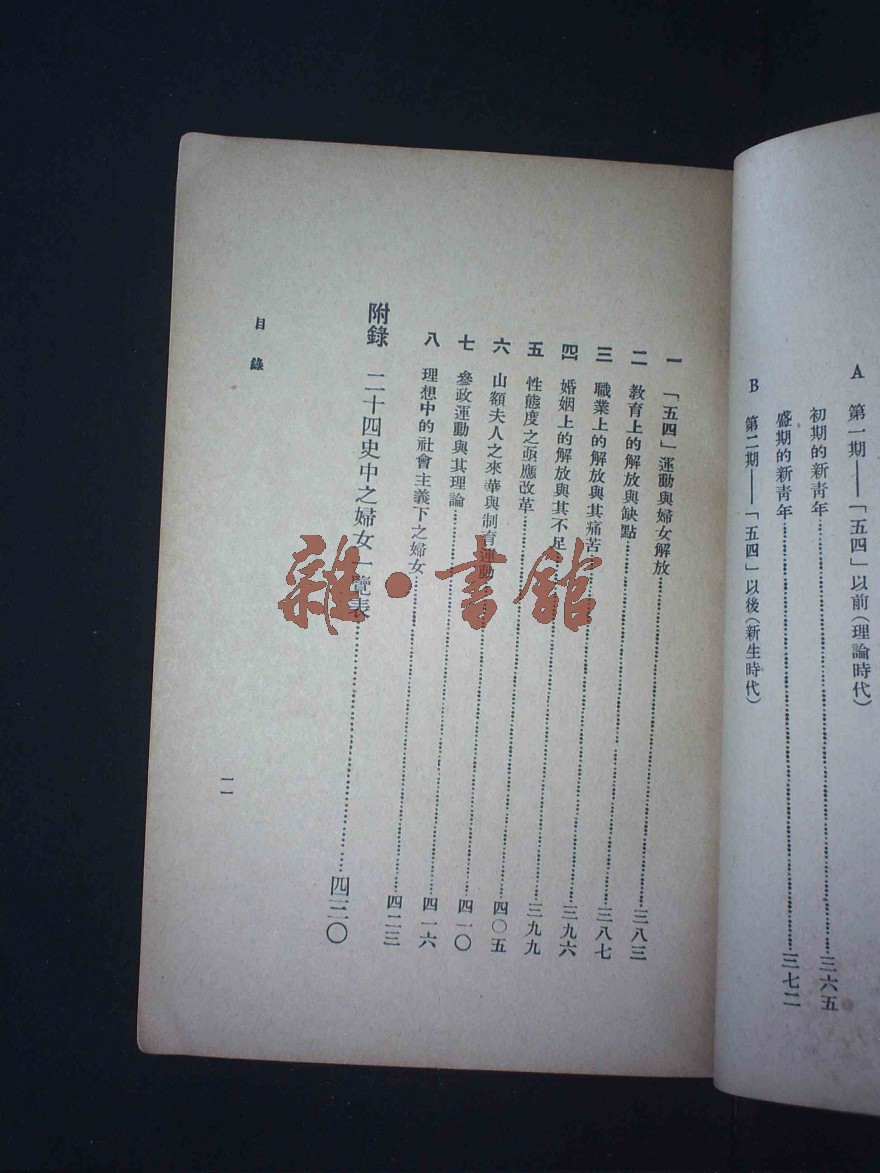 A 第一期——「五四」以前(理論時代)
初期的新靑年……三六五
盛期的新靑年……三七二
B 第二期——「五四」以後(新生時代)
一 「五四」運動與婦女解放……三八三
二 教育上的解放與缺點……三八七
三 職業上的解放與其痛苦……三九六
四 婚姻上的解放與其不足……三九九
五 性態度之亟應改革……四〇五
六 山額夫人之來華與制育運動……四一〇
七 參政運動與其理論……四一六
八 理想中的社會主義下之婦女……四二三
附錄 二十四史中之婦女一覽表……四三〇
目錄
一一
雜·書館